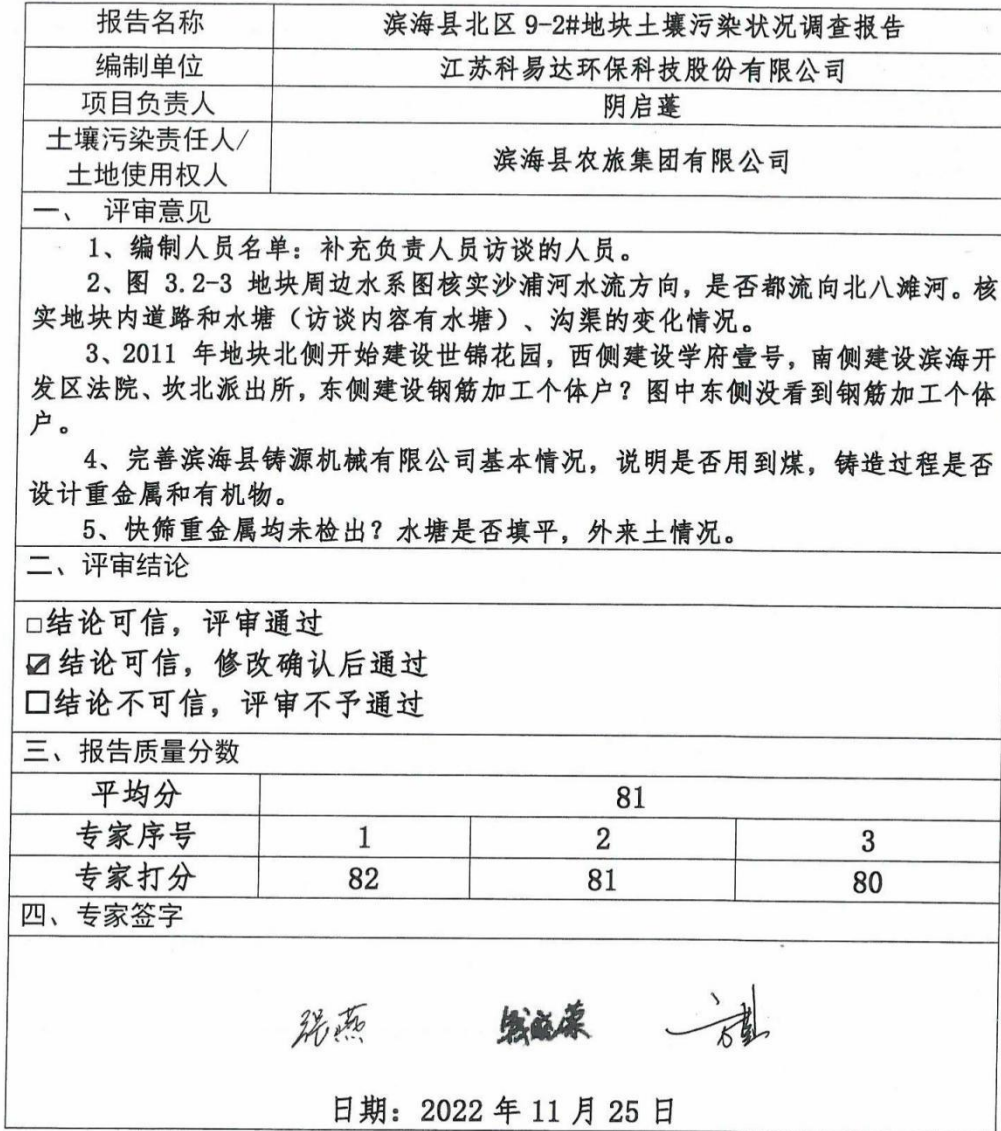 报告名称 滨海县北区 9-2#地块土壤污染状况调查报告
编制单位 江苏科易达环保科技股份有限公司
项目负责人 阴启蓬
土壤污染责任人/
土地使用权人 滨海县农旅集团有限公司
一、 评审意见
1、编制人员名单：补充负责人员访谈的人员。
2、图 3.2-3 地块周边水系图核实沙浦河水流方向，是否都流向北八滩河。核
实地块内道路和水塘（访谈内容有水塘）、沟渠的变化情况。
3、2011 年地块北侧开始建设世锦花园，西侧建设学府壹号，南侧建设滨海开
发区法院、坎北派出所，东侧建设钢筋加工个体户？图中东侧没看到钢筋加工个体
户。
4、完善滨海县铸源机械有限公司基本情况，说明是否用到煤，铸造过程是否
设计重金属和有机物。
5、快筛重金属均未检出？水塘是否填平，外来土情况。
二、评审结论
□结论可信，评审通过
☑结论可信，修改确认后通过
□结论不可信，评审不予通过
三、报告质量分数
平均分 81
专家序号 1 2 3
专家打分 82 81 80
四、专家签字
张燕
日期：2022 年 11 月 25 日